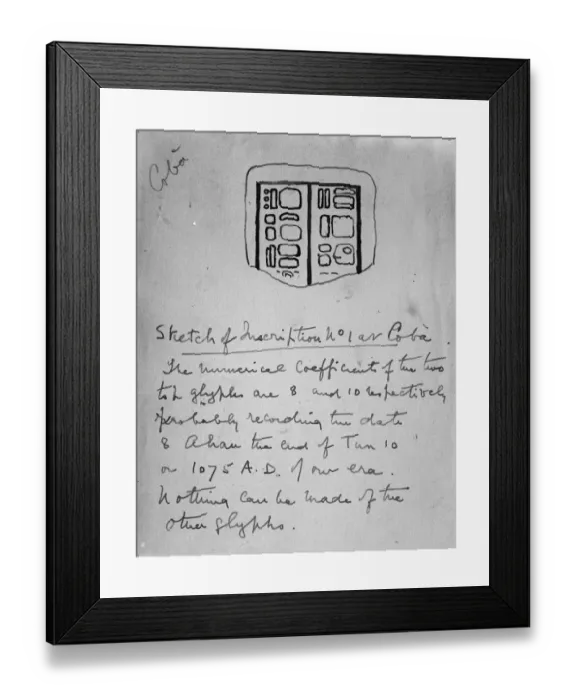 Cobá
Sketch of Inscription No 1 at Cobá.
The numerical coefficients of the two
top glyphs are 8 and 10 respectively
probably recording the date
8 Ahau the end of Tun 10
or 1075 A.D. of our era.
Nothing can be made of the
other glyphs.